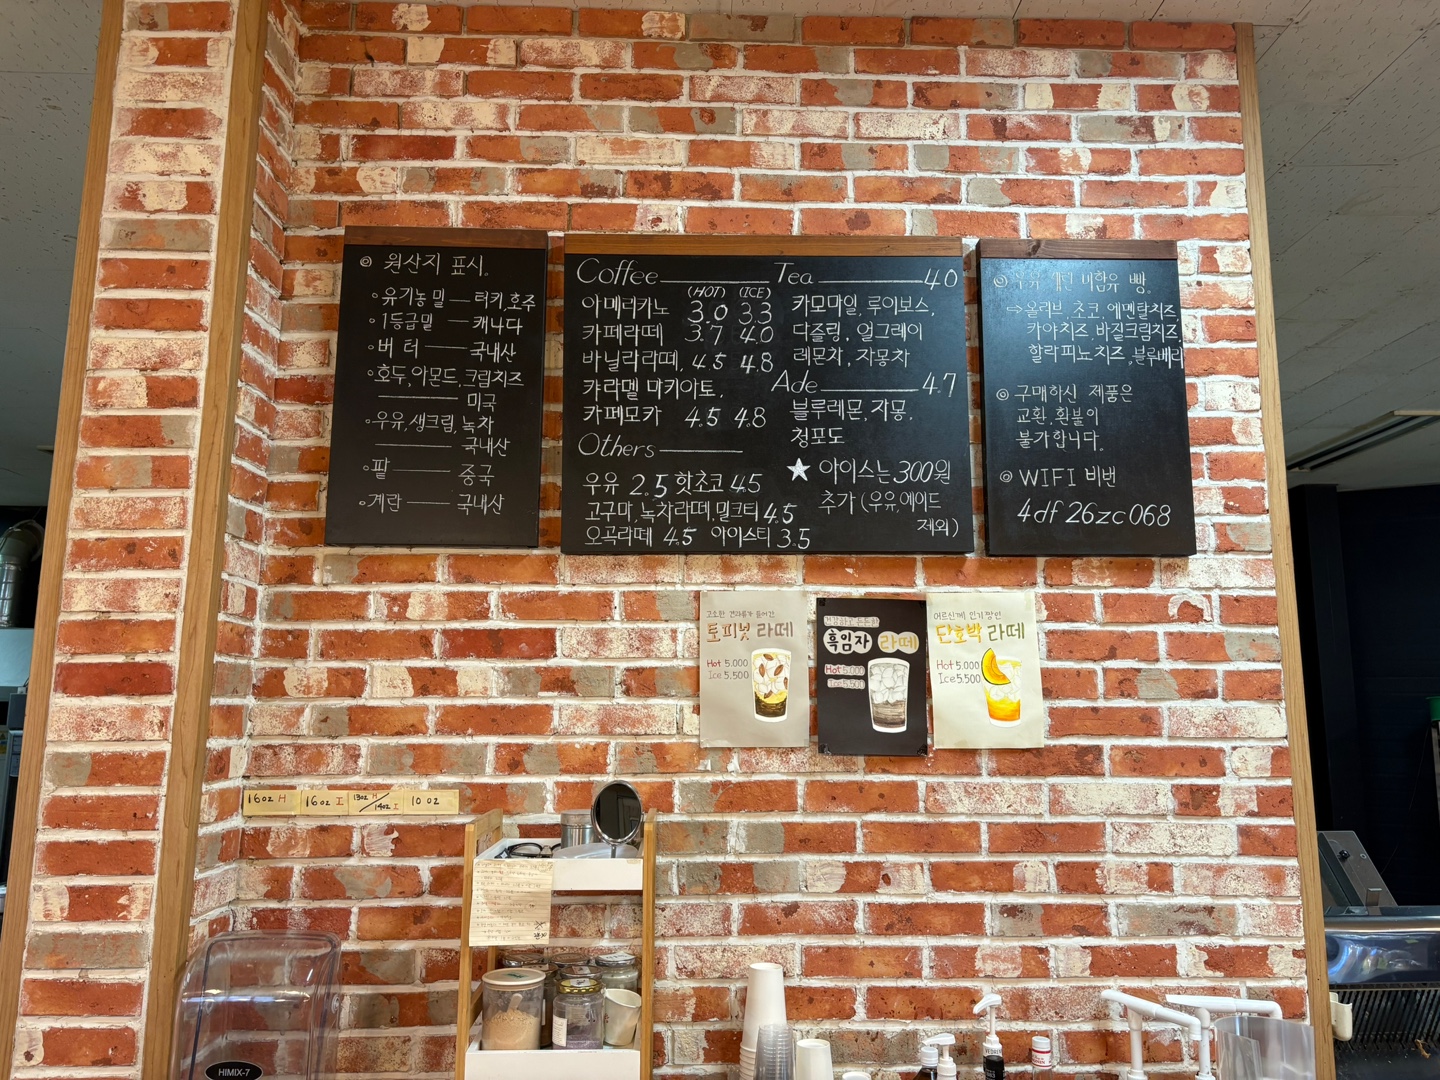 ◎ 원산지 표시.
◦유기농밀 — 터키,호주
◦1등급밀 — 캐나다
◦버터 — 국내산
◦호두,아몬드,크림치즈
— 미국
◦우유,생크림,녹차
— 국내산
◦팥 — 중국
◦계란 — 국내산
Coffee
(HOT) (ICE)
아메리카노 3.0 3.3
카페라떼 3.7 4.0
바닐라라떼, 4.5 4.8
캬라멜 마키아토,
카페모카 4.5 4.8
Others
우유 2.5 핫초코 4.5
고구마,녹차라떼,밀크티 4.5
오곡라떼 4.5 아이스티 3.5
Tea — 4.0
카모마일, 루이보스,
다즐링, 얼그레이
레몬차, 자몽차
Ade — 4.7
블루레몬, 자몽,
청포도
★ 아이스는 300원
추가 (우유,에이드
제외)
◎ 우유 계란 비함유 빵.
⇒올리브, 초코, 에멘탈치즈
카야치즈, 바질크림치즈,
할라피노치즈, 블루베리
◎ 구매하신 제품은
교환, 환불이
불가합니다.
◎ WIFI 비번
4df26zc068
고소한 견과류가 들어간
토피넛 라떼
Hot 5.000
Ice 5.500
흑임자 라떼
Hot 5.000
Ice 5.500
어르신께 인기짱인
단호박 라떼
Hot 5.000
Ice 5.500
16oz H
16oz I
13oz H / 14oz I
10oz
HIMIX-7